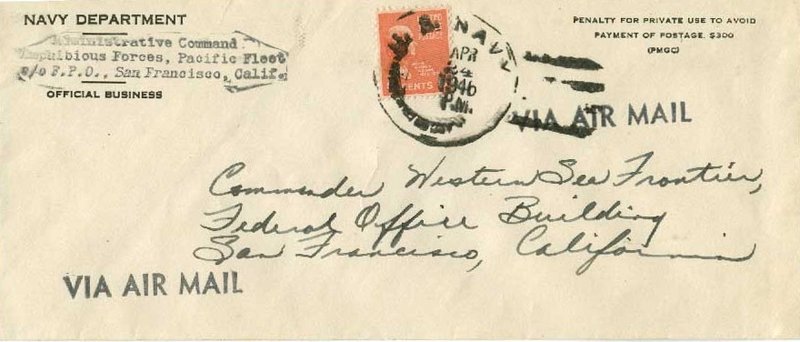 NAVY DEPARTMENT
Administrative Command
Amphibious Forces, Pacific Fleet
c/o F.P.O., San Francisco, Calif.
OFFICIAL BUSINESS
PENALTY FOR PRIVATE USE TO AVOID
PAYMENT OF POSTAGE, $300
(PMGC)
CENTS
NAVY
APR
24
1946
P.M.
VIA AIR MAIL
Commander Western Sea Frontier,
Federal Office Building
San Francisco, California
VIA AIR MAIL